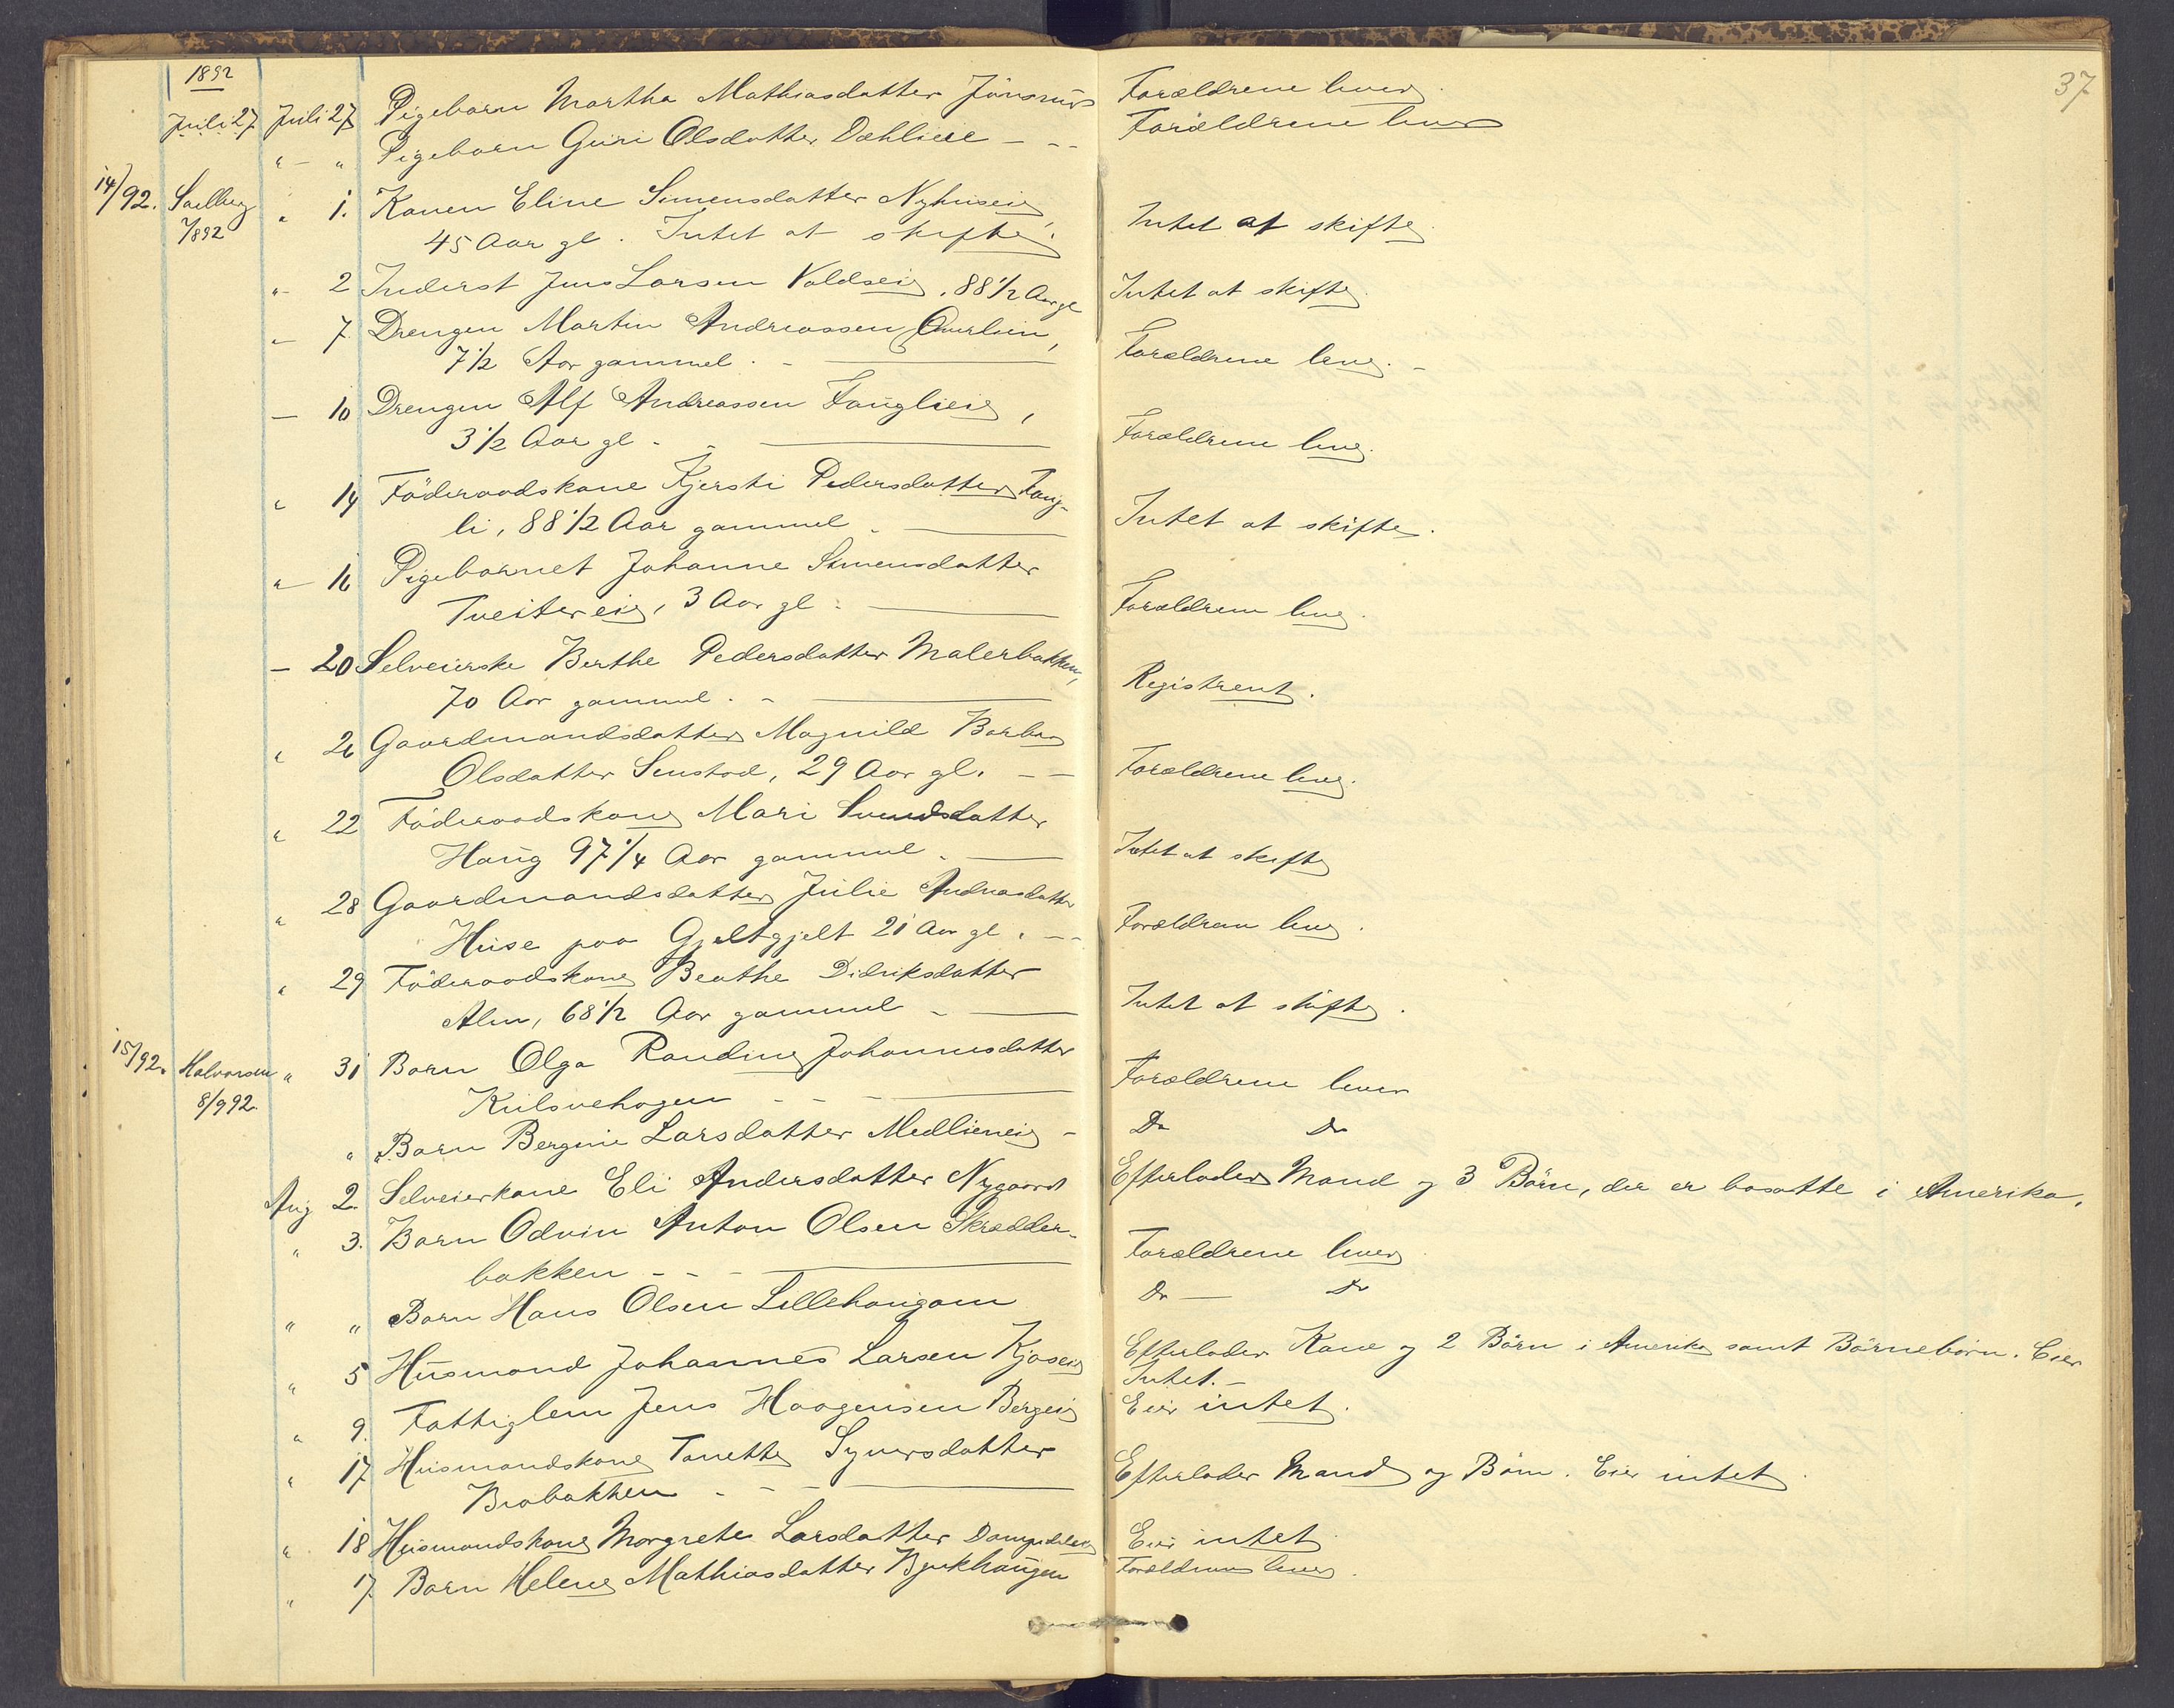 37
1892
Juli 27 Juli 27 Pigebarn Martha Mathiasdatter Forældrene lever
" — " Pigebarn Guri Olsdatter Dahlieie — — — Forældrene lever
14/92. Sollberg " 1. Konen Eline Simensdatter Nyhuseie, Intet at skifte
/892 45 Aar gl. Intet at skifte.
" 2 Inderst Jens Larsen Voldseie, 88 1/2 Aar gl Intet at skifte
" 7 Drengen Martin Andreassen Øverlien,
7 1/2 Aar gammel. — Forældrene lever. —
— 10 Drengen Alf Andreassen Fauglieie,
3 1/2 Aar gl — Forældrene lever.
" 14 Föderaadskone Kjersti Pedersdatter Faug-
li, 88 1/2 Aar gammel — Intet at skifte.
" — 16 Pigebarnet Johanne Simensdatter
Tveitereie, 3 Aar gl. — Forældrene lever.
— 20 Selveierske Berthe Pedersdatter Malerbakken,
70 Aar gammel. — Registrert.
" 26 Gaardmandsdatter Magnild Barbra
Olsdatter Senstad, 29 Aar gl. — — Forældrene lever.
" 22 Föderaadskone Mari Svendsdatter
Haug 97 1/4 Aar gammel. — Intet at skifte
" 28 Gaardmandsdatter Julie Andreasdatter
Huse paa Gjeltgjelt 21 Aar gl. — — Forældrene lever.
" 29 Föderaadskone Beathe Didriksdatter
Alm, 68 1/2 Aar gammel — Intet at skifte.
15/92. Halvorsen " 31 Barn Olga Randine Johannesdatter
8/9 92. Kulsvehagen — — — Forældrene lever
" " Barn Bergine Larsdatter Medlieneie — Do Do
Aug 2. Selveierkone Eli Andersdatter Nygaard Efterlader Mand og 3 Börn, der er bosatte i Amerika.
" 3. Barn Odvin Anton Olsen Skrædder-
bakken — — — Forældrene lever
" " Barn Hans Olsen Lillehaugom Do — Do
" 5 Husmand Johannes Larsen Kjoseie Efterlader Kone og 2 Börn i Amerika samt Börnebörn. Eier
Intet. —
" 9. Fattiglem Jens Haagensen Bergeie Eier intet.
" 17 Husmandskone Tonette Syversdatter
Brobakken — — — Efterlader Mand og Börn. Eier intet.
" 18 Husmandskone Margrete Larsdatter Eier intet
" 17. Barn Helene Mathiasdatter Bjerkhaugen Forældrene lever.